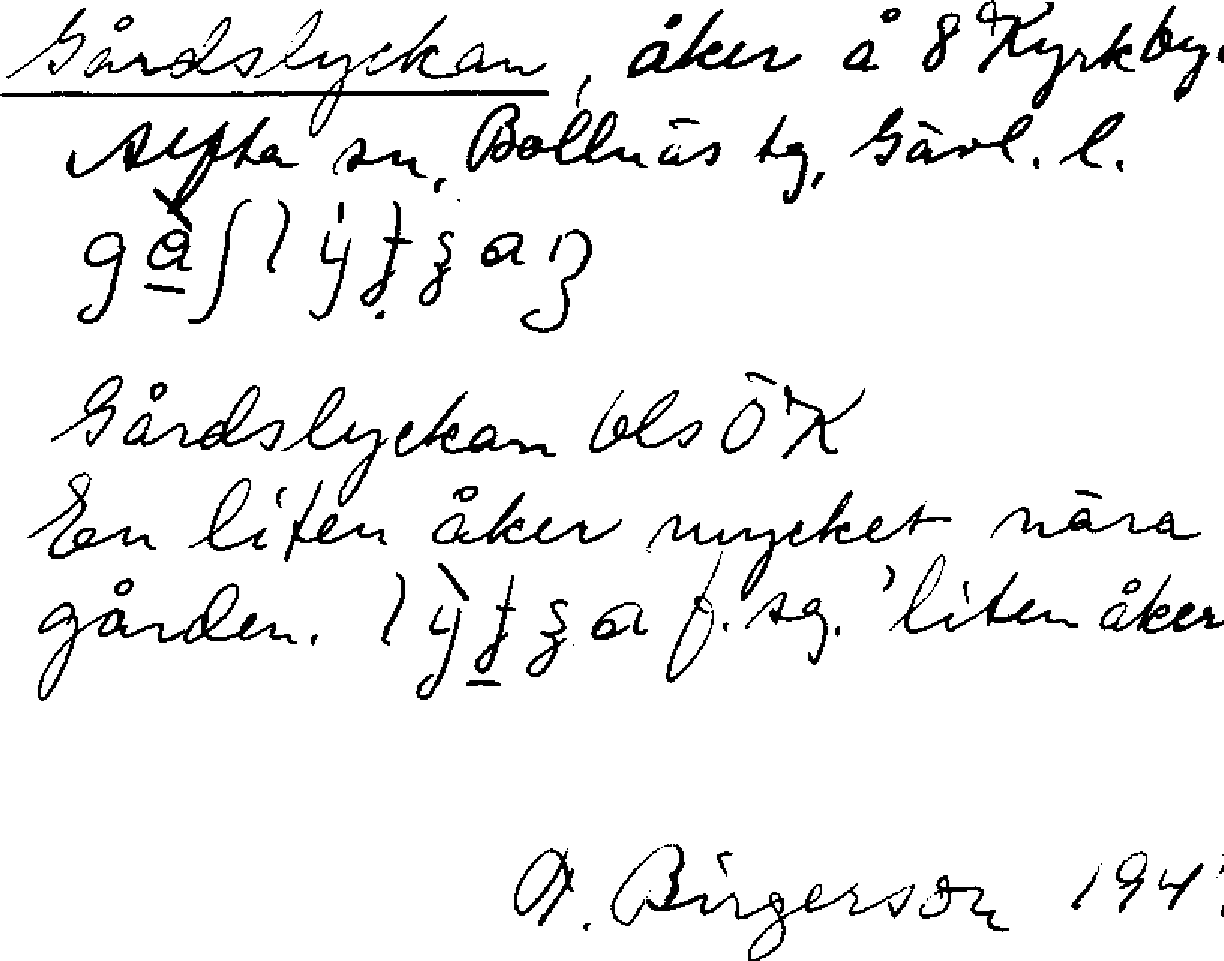 Gårdslyckan, åker å 8 Kyrkby.
Alfta sn, Bollnäs tg, Gävl. l.
Gårdslyckan bls ÖK
En liten åker mycket nära
gården. f. sg. 'liten åker
Birgerson